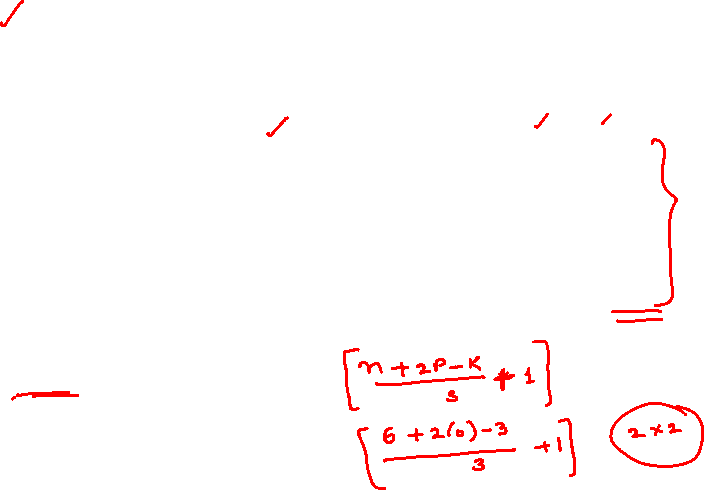 [n + 2P - K / s + 1]
[6 + 2(0) - 3 / 3 + 1] 2 x 2